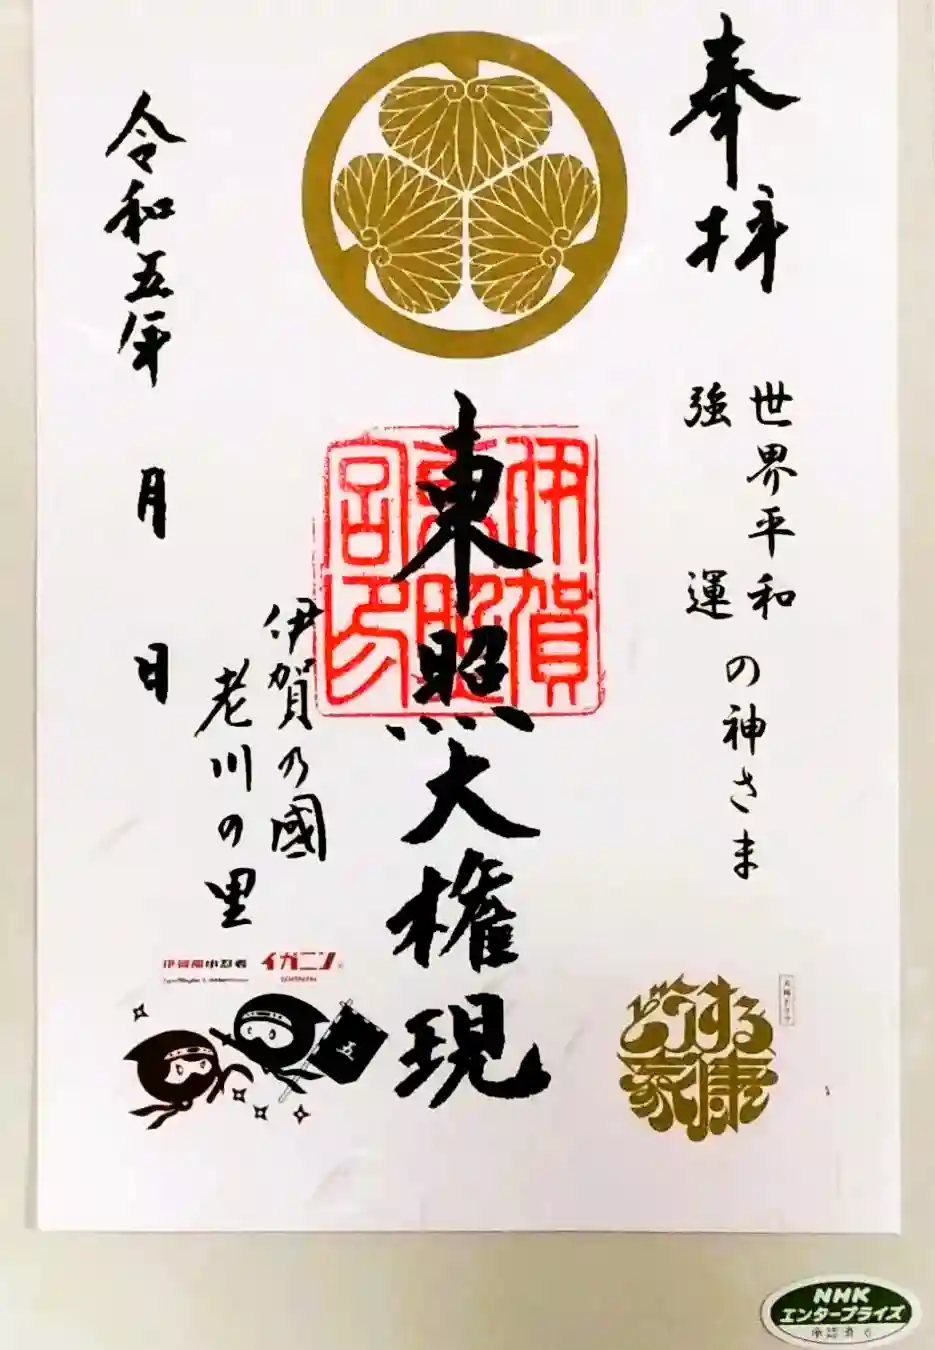 奉拝
世界平和
強運
の神さま
東照大権現
伊賀東照宮印
伊賀乃國
老川の里
令和五年
月
日
伊賀流小忍者
イガニン
五
大河ドラマ
どうする家康
NHK
エンタープライズ
承認済